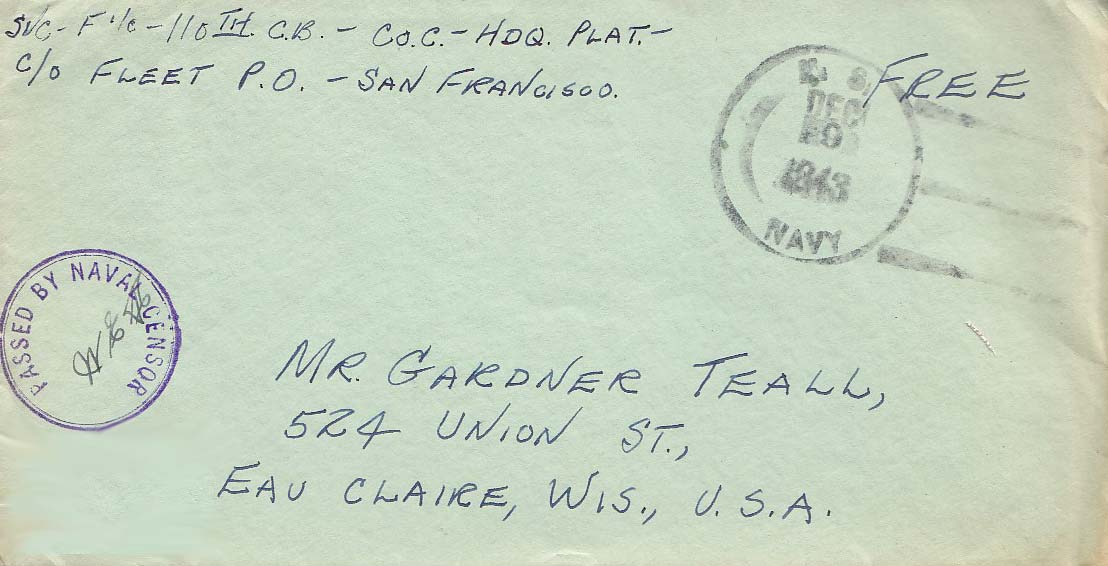 SVC-F 1/c-110TH. C.B. - CO.C.-HDQ. PLAT.-
C/O FLEET P.O. - SAN FRANCISCO.
FREE
U. S.
DEC
1943
NAVY
PASSED BY NAVAL CENSOR
MR. GARDNER TEALL,
524 UNION ST.,
EAU CLAIRE, WIS., U.S.A.